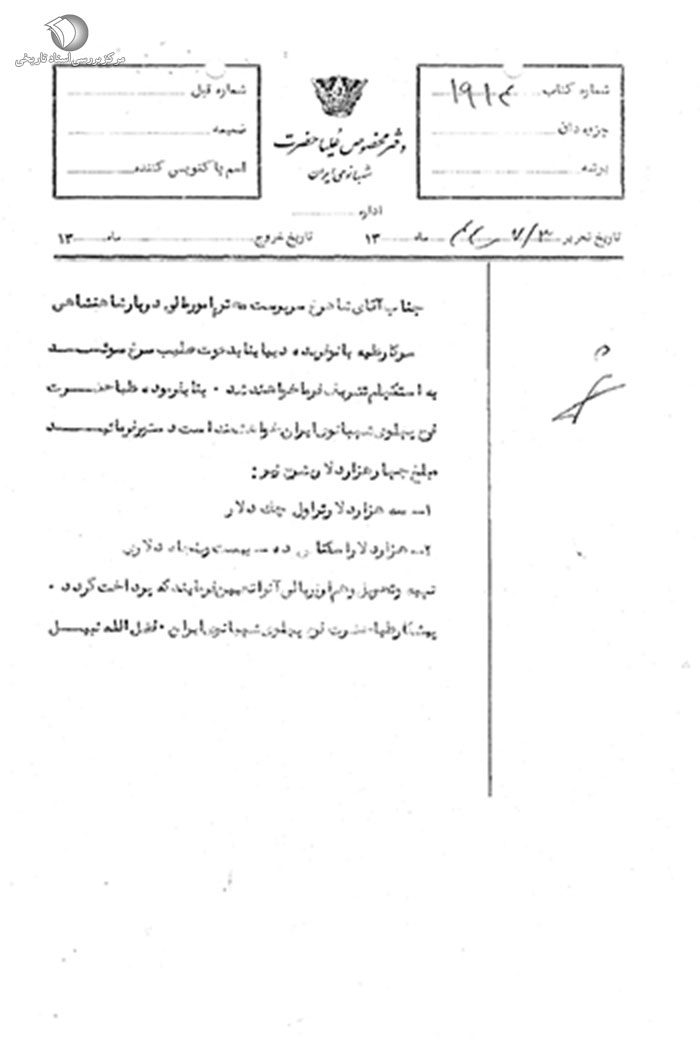 مرکز بررسی اسناد تاریخی
شماره کتاب ۱۹۱۴
جزوه‌دان
برشه
دفتر مخصوص علیاحضرت
شهبانوی ایران
شماره قبل
ضمیمه
اسم پاکنویس کننده
اداره
تاریخ تحریر ۷/۳ ماه ۱۳ تاریخ خروج ماه ۱۳
جناب آقای شاهرخ سرپرست دفتر امور مالی دربار شاهنشاهی
سرکار علیه بانو فریده دیبا بنا بدعوت صلیب سرخ سوئد
به استکهلم تشریف فرما خواهند شد . بنا بفرموده علیا حضرت
فرح پهلوی شهبانوی ایران خواهشمند است دستور فرمائید
مبلغ چهار هزار دلار بشرح زیر :
۱- سه هزار دلار تراول چک دلار
۲- هزار دلار اسکناس ده - بیست و پنجاه دلاری
تهیه و تحویل و هم ارز ریالی آنرا تعیین فرمایند که پرداخت گردد .
پیشکار علیا حضرت فرح پهلوی شهبانوی ایران . فضل الله نبیل